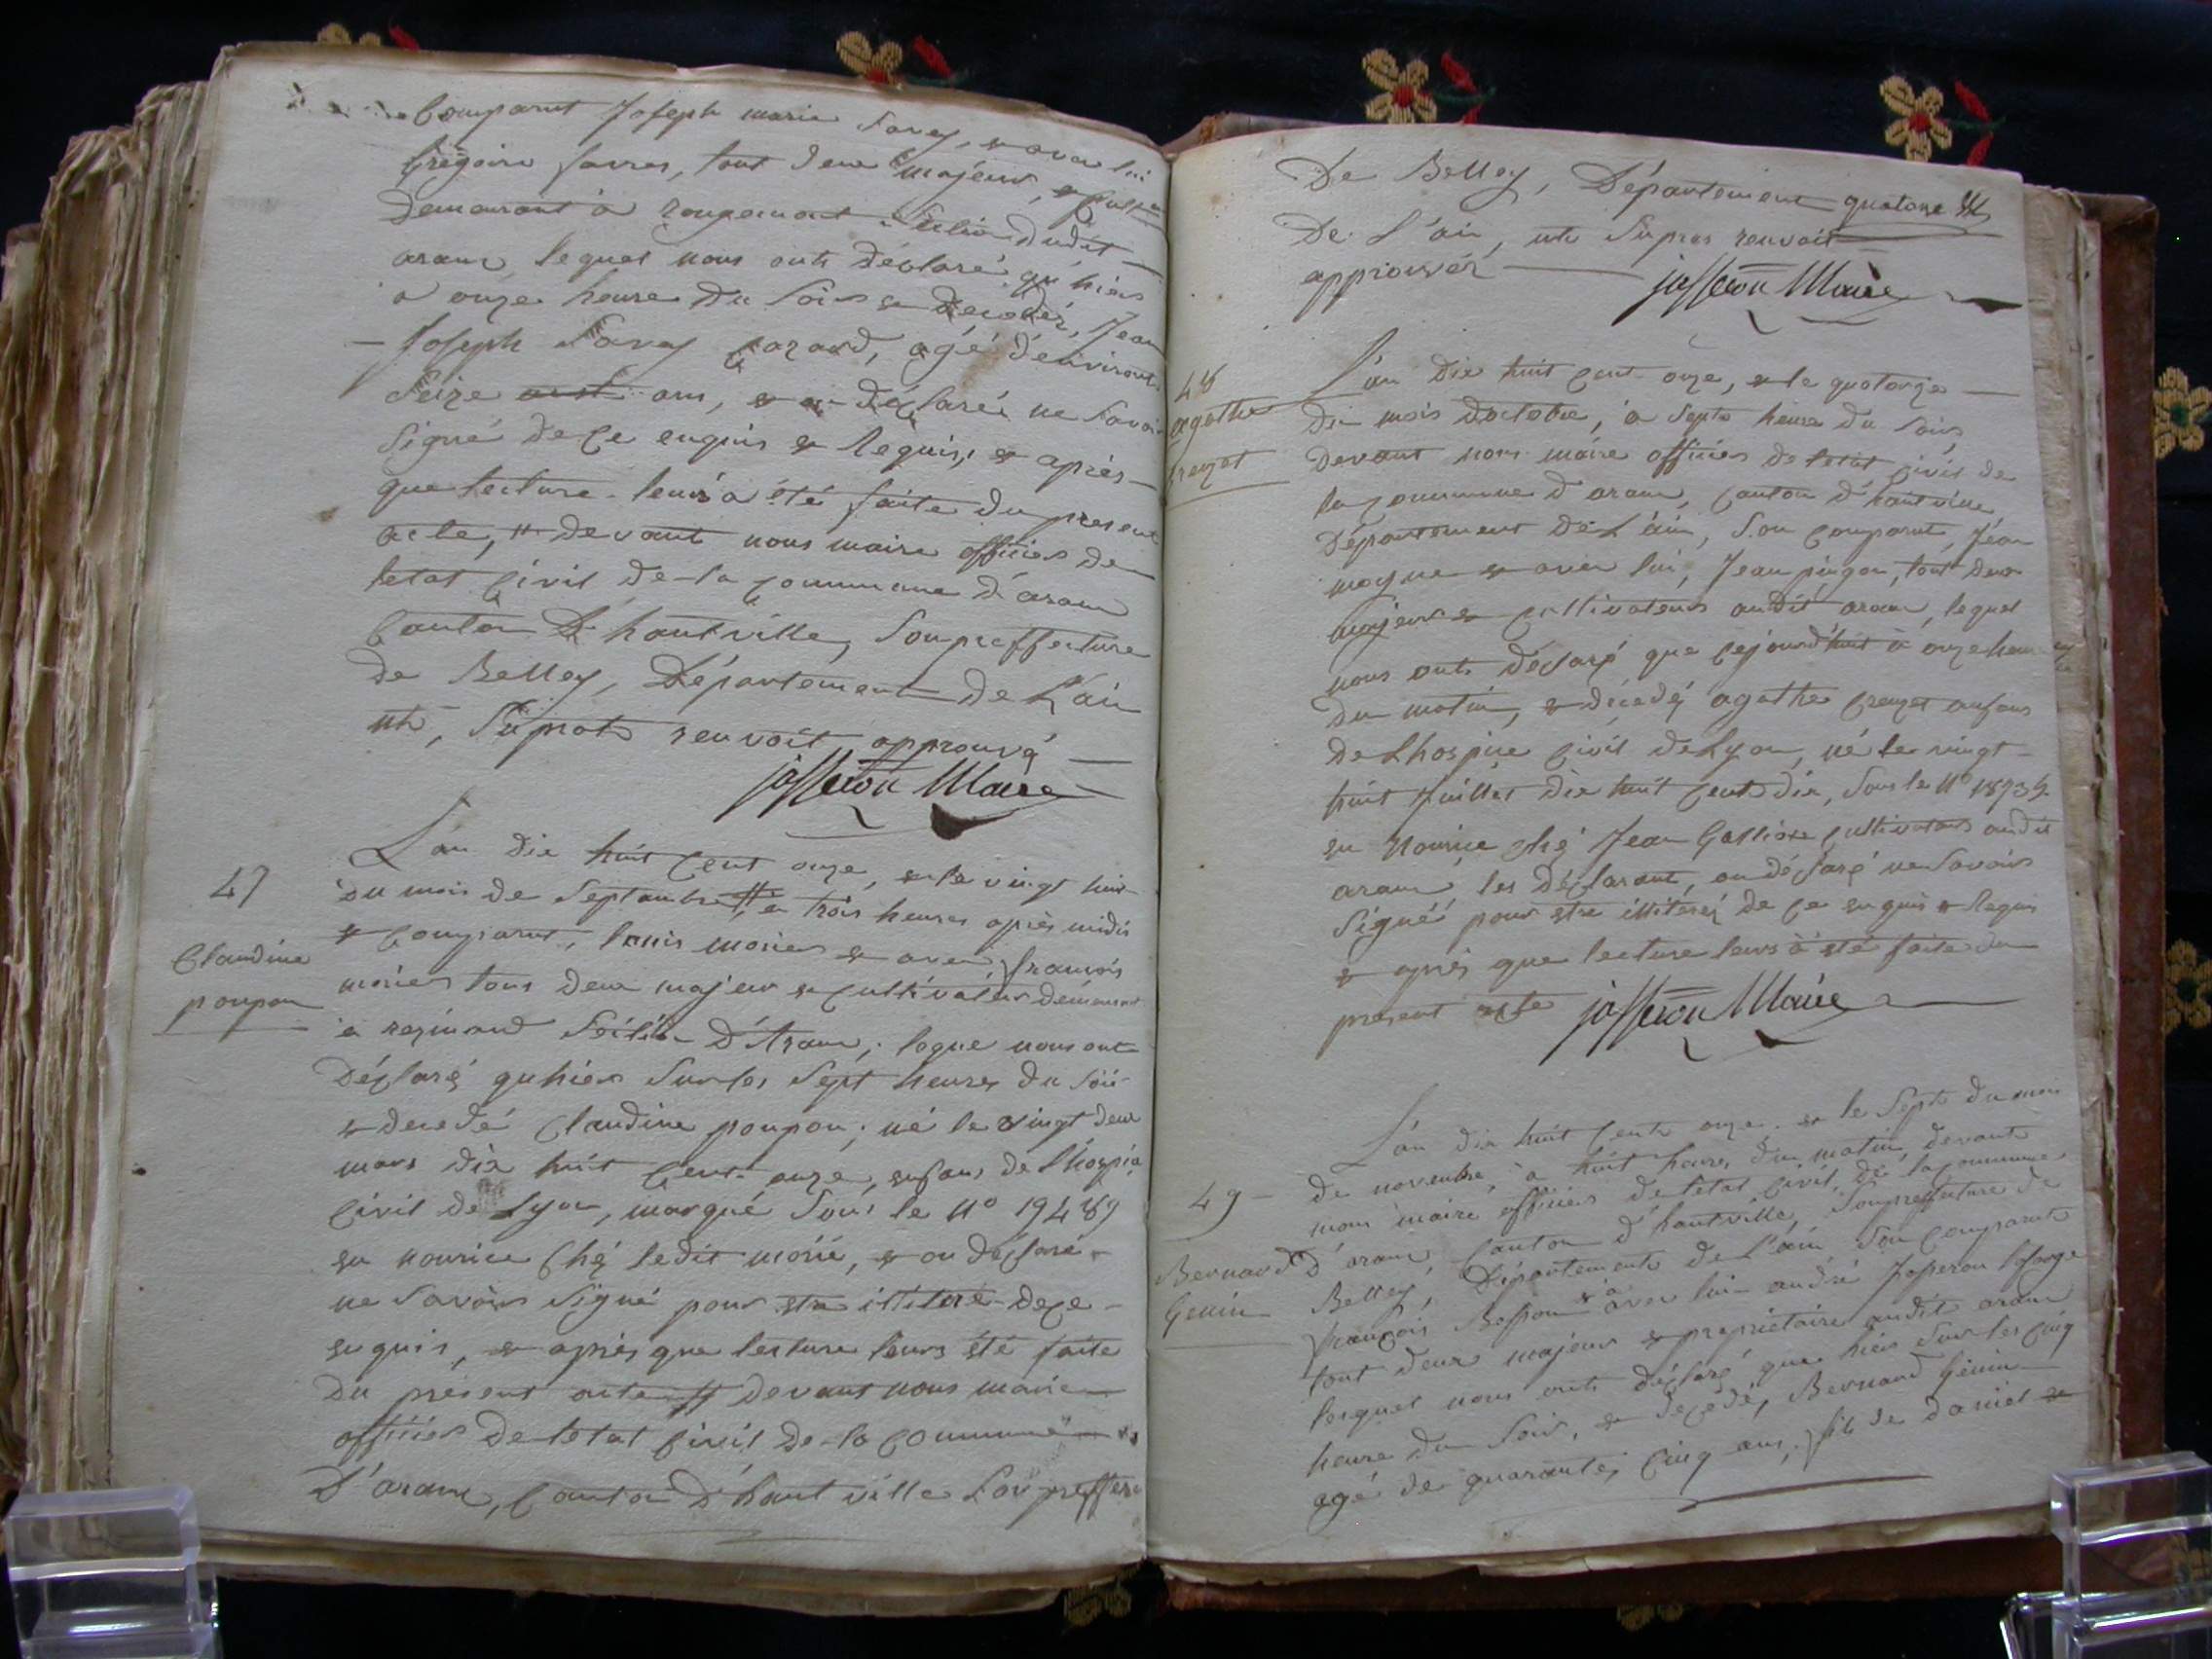 Comparut Joseph marie Savey, & avec lui
Grégoire favres, tout deux majeur, &
Demeurant a rougemont Section dudit
aranc, lequel nous onts déclaré qu'hiers
a onze heure du Soirs & decedéz, Jean
Joseph Savey agé d'environt
Seize ans, & on déclaréz ne Savoir
Signé de Ce enquis & Requis, & après
que lecture leurs a été faite du present
acte, # devant nous maire officier de
letat Civil de la Commune d'aranc
Canton D'hautville, Soupreffecture
de Belley, Département De L'ain
ut, Supra renvoit approuvé
josseron Maire
47
Claudine
poupon
L'an dix huit Cent onze, & le vingt huit
du mois de Septembre # a trois heures après midis
& Comparut, Louis morier & avec françois
morier tous deux majeur & Cultivateur demeurant
a resinand Section D'Aranc, leque nous ont
Déclaré quhiers Sur les Sept heures du Soir
& decedé Claudine poupon; né le vingt deux
mars dix huit Cent onze, enfans de l'hospice
Civil de Lyon, marqué Sous le No 19489
en nourice Chéz ledit morié, & on déclaré
ne Savoirs Signé pour etre illiteré dece
enquis, & après que lecture leurs été faite
du présent acte # devant nous maire
officier de letat Civil De la Commune
D'aranc, Canton D'hautville Soupreffecture
De Belley, Département quatorze
De L'ain, ut Supras renvoit
approuvéz
josseron Maire
48
agathe
Creuzet
L'an Dix huit Cent onze, & le quatorze
Du mois d'octobre, a Septs heure du Soirs
Devant nous maire officier de letat Civil de
la Commune d'aranc, Canton d'hautville,
Département De L'ain, Son Comparut, Jean
moyne & avec lui, Jean pingon, tout deux
majeur & Cultivateurs audit aranc, lequel
nous onts déclaré que Cejourd'huit a onze heure
Du matin, & décedéz agathe Creuzet enfans
De Lhospice Civil de Lyon, né le vingt
huit Juillet Dix huit Cent dix, Sous le No
en Nourice chéz Jean Cultivateurs audit
aranc, les Déclarant, on déclaré ne Savoirs
Signéé pour etre illiteréz de Ce enquis & Requis
& après que lecture leurs a été faite du
present acte josseron Maire
49
Bernard
Genin
L'an dix huit Cents onze & le Septs du mois
de novembre, a huit heures du matin, devant
nous maire officiers de letat Civil, de la Commune
D'aranc, Canton d'hautville, Soupreffecture de
Belley, Département de L'ain, Son Comparut
françois Bosson & avec lui andré Josperon
tout deux majeur & propriétaire audit aranc
lesquel nous onts déclaré que hiers Sur les Cinq
heure du Soir, & decedé, Bernard Génin
agé de quarante, Cinq ans, fils de daniel &